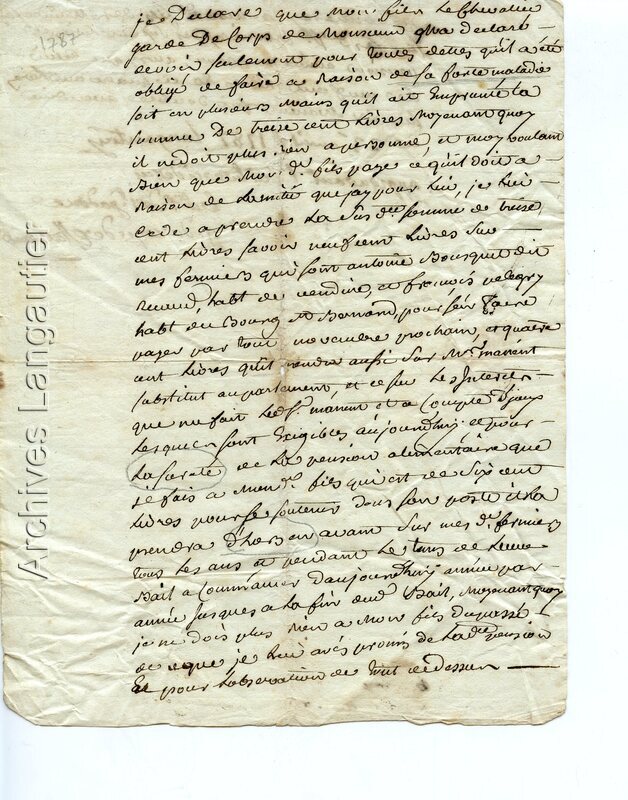 1787
je Declare que Mon fils Le Chevalier
garde De Corps de Monsieur ma declaré
devoir seulement pour toutes dettes quil a été
obligé de faire a Raison de sa forte maladie
soit en plusieurs mains quil ait Emprunté la
somme De treize cent Livres Moyenant quoy
il ne doit plus rien a personne, et moy voulant
Bien que Mon d. fils paye ce quil doit a
Raison de Lamitié que jay pour lui, je lui
Cede a prendre La susdte somme de treize
cent Livres savoir neuf cent Livres sur
mes fermiers qui sont antoine Bousquet dit
Renaud, habt de et francois
habt du Bourg St Bonard, pour sen faire
payer par tout novembre prochain, et quatre
cent Livres quil prendra aussi sur Mr manent
substitut au parlement, et ce sur Les Interets
que me fait Led. Sr. manent et a Compte Dyceux
Lesquels sont Exigibles aujourdhuy et pour
La sureté de La pension alimentaire que
je fais a Mond. fils qui est de six cent
Livres pour se soutenir dans son poste il La
prendra Dhors en avant sur mes d. fermiers
tous Les ans et pendant Le tems de Leur
Bail a Commancer Daujourdhuy année par
année jusques a La fin dud. Bail, Moyenant quoy
je ne dois plus rien a Mon fils du passé
de ce que je lui avés promis de Ladte pension
Et pour Lobservation de tout ce dessus
Archives Langautier